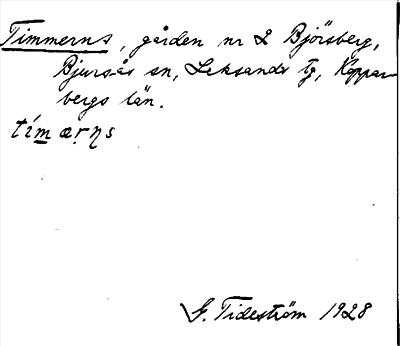 Timmerns, gården nr 2 Björsberg,
Bjursås sn, Leksands tg, Koppar-
bergs län.
tím ærṇs
G. Tideström 1928